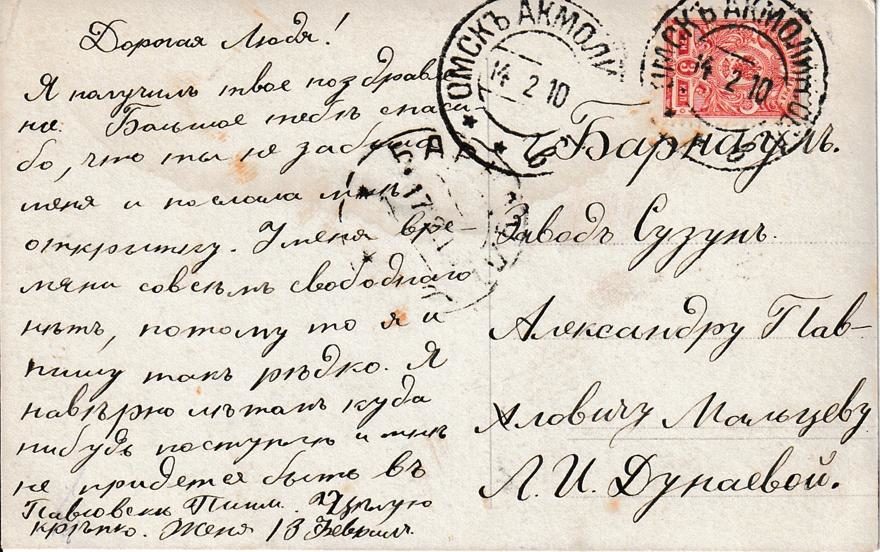 Дорогая Люда!
Я получилъ твое поздравле
ние. Большое тебѣ спаси
бо, что ты не забыла
меня и послала мнѣ
открытку. У меня вре-
мяни совсѣмъ свободнаго
нѣтъ, потому то я и
пишу такъ рѣдко. Я
навѣрно лѣтомъ куда
нибудь поступлю и мнѣ
не придется быть въ
Павловскѣ Пиши. Цѣлую
крѣпко. Женя 13 Февраля.
ОМСКЪ АКМОЛИ
14 2 10
ОМСКЪ АКМОЛИНСК
14 2 10
БАР
17
3
г. Барнаулъ.
Заводъ Сузунъ.
Александру Пав-
ловичу Мальцеву
Л. И. Дунаевой.